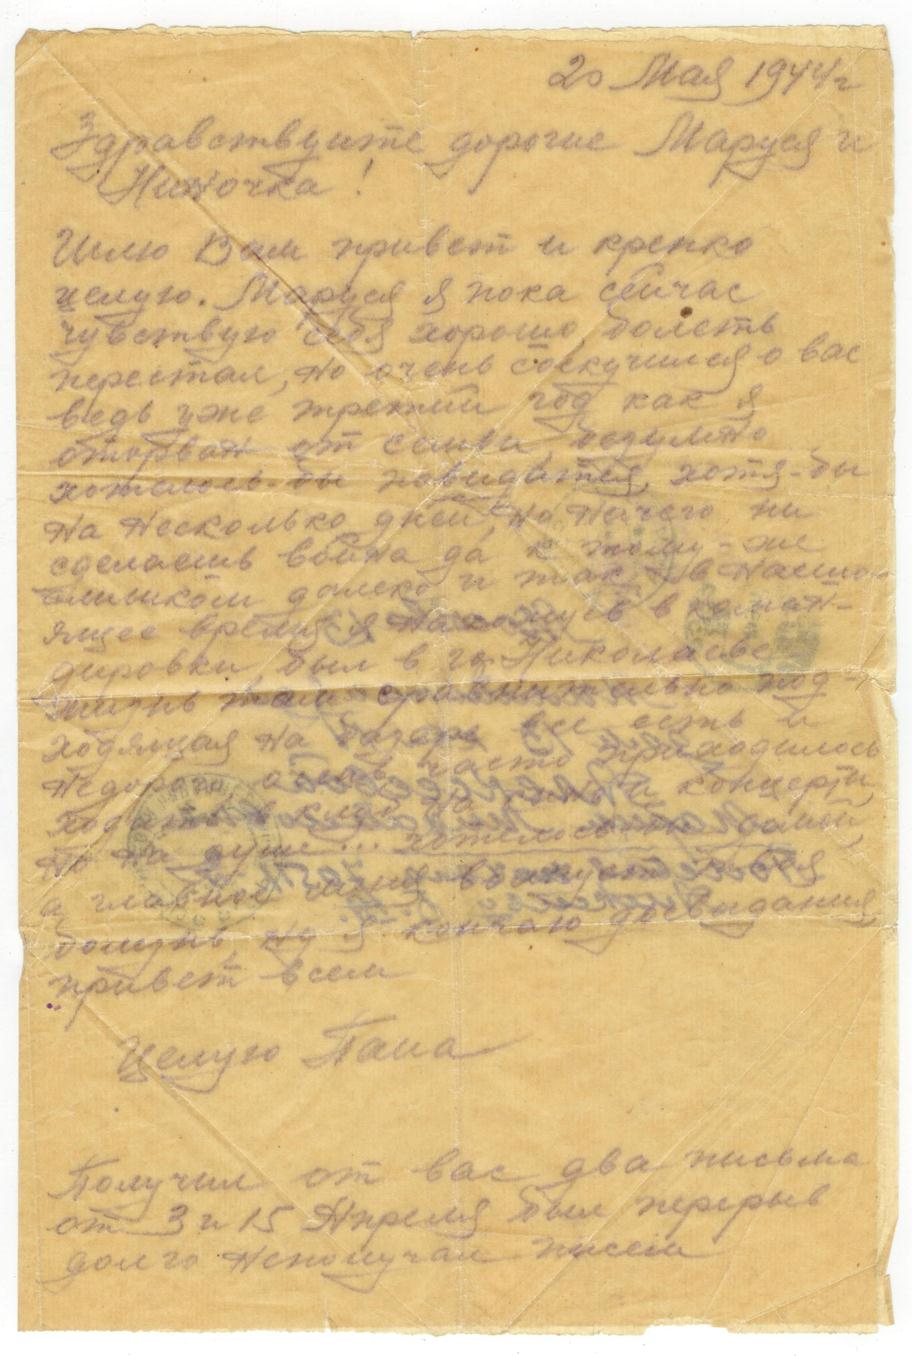 20 Мая 1944 г
Здравствуите дорогие Маруся и
Ниночка!
Шлю Вам привет и крепко
целую. Маруся я пока сейчас
чувствую себя хорошо, болеть
перестал, но очень соскучился о вас
ведь уже третий год как я
оторван от семьи, безумно
хотелось-бы повидатся, хотя-бы
на несколько дней, но ничего ни
сделаешь война да к тому-же
слишком далеко и так в насто-
ящее время я нахожусь в коман-
дировки был в г. Николаеве
жизнь там сравнительно под-
ходящая на базаре все есть и
недорого часто приходилось
ходить в клуб на и концерты,
но на душе... хотелось бы домой,
а главное меня
болезнь, ну я кончаю досвидания,
привет всем
Целую Папа
Получил от вас два письма
от 3 и 15 Апреля был перерыв
долго неполучал писем